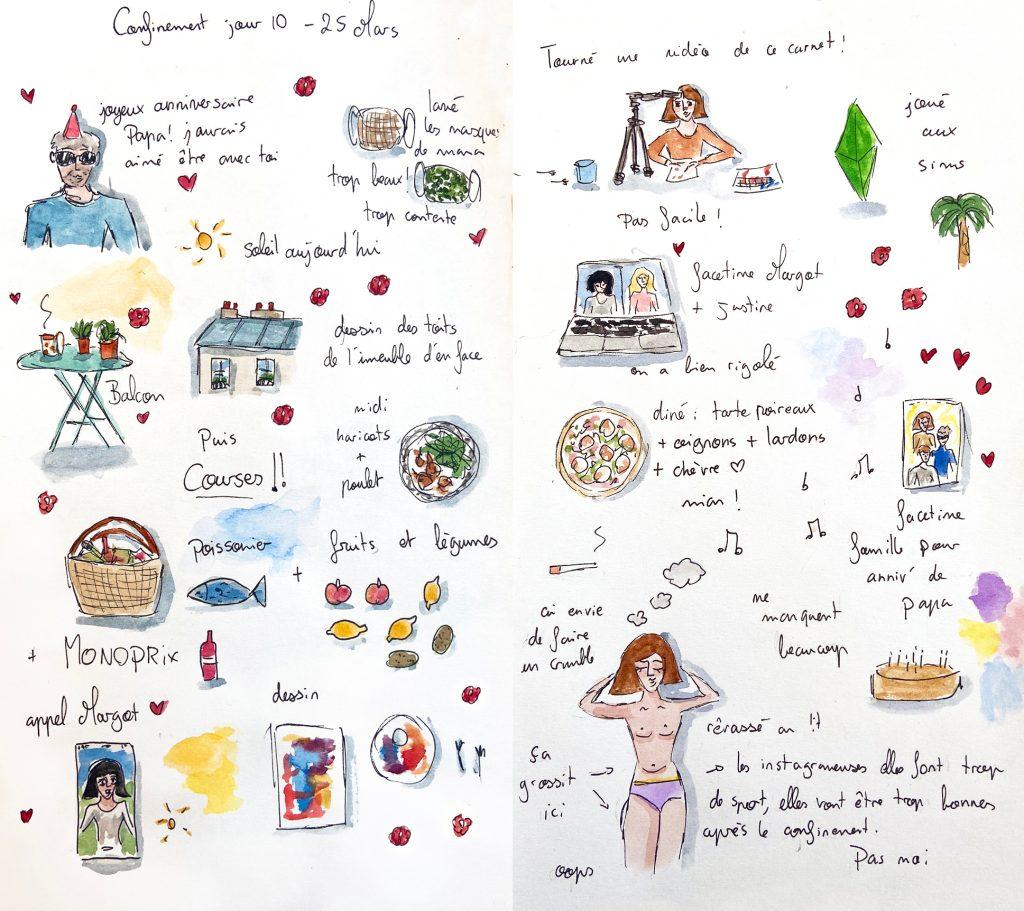 Confinement jour 10 - 25 Mars
joyeux anniversaire
Papa! j'aurais
aimé être avec toi
lavé
les masques
de
trop beaux!
trop contente
soleil aujourd'hui
Balcon
dessin des toits
de l'imeuble d'en face
Puis
Courses!!
midi
haricots
+
poulet
Poissonier
+
fruits et légumes
+ MONOPRIX
appel Margot
dessin
Tourné une vidéo de ce carnet!
Pas facile!
joué
aux
sims
facetime Margot
+ Justine
on a bien rigolé
diné: tarte poireaux
+ oignons + lardons
+ chèvre ♡
mian!
facetime
famille pour
anniv' de
papa
me
manquent
beaucoup
ai envie
de faire
un crumble
rêvassé au
ça
grossit →
ici
→ les instagrameuses elles font trop
de sport, elles vont être trop bonnes
après le confinement.
Pas moi
oops